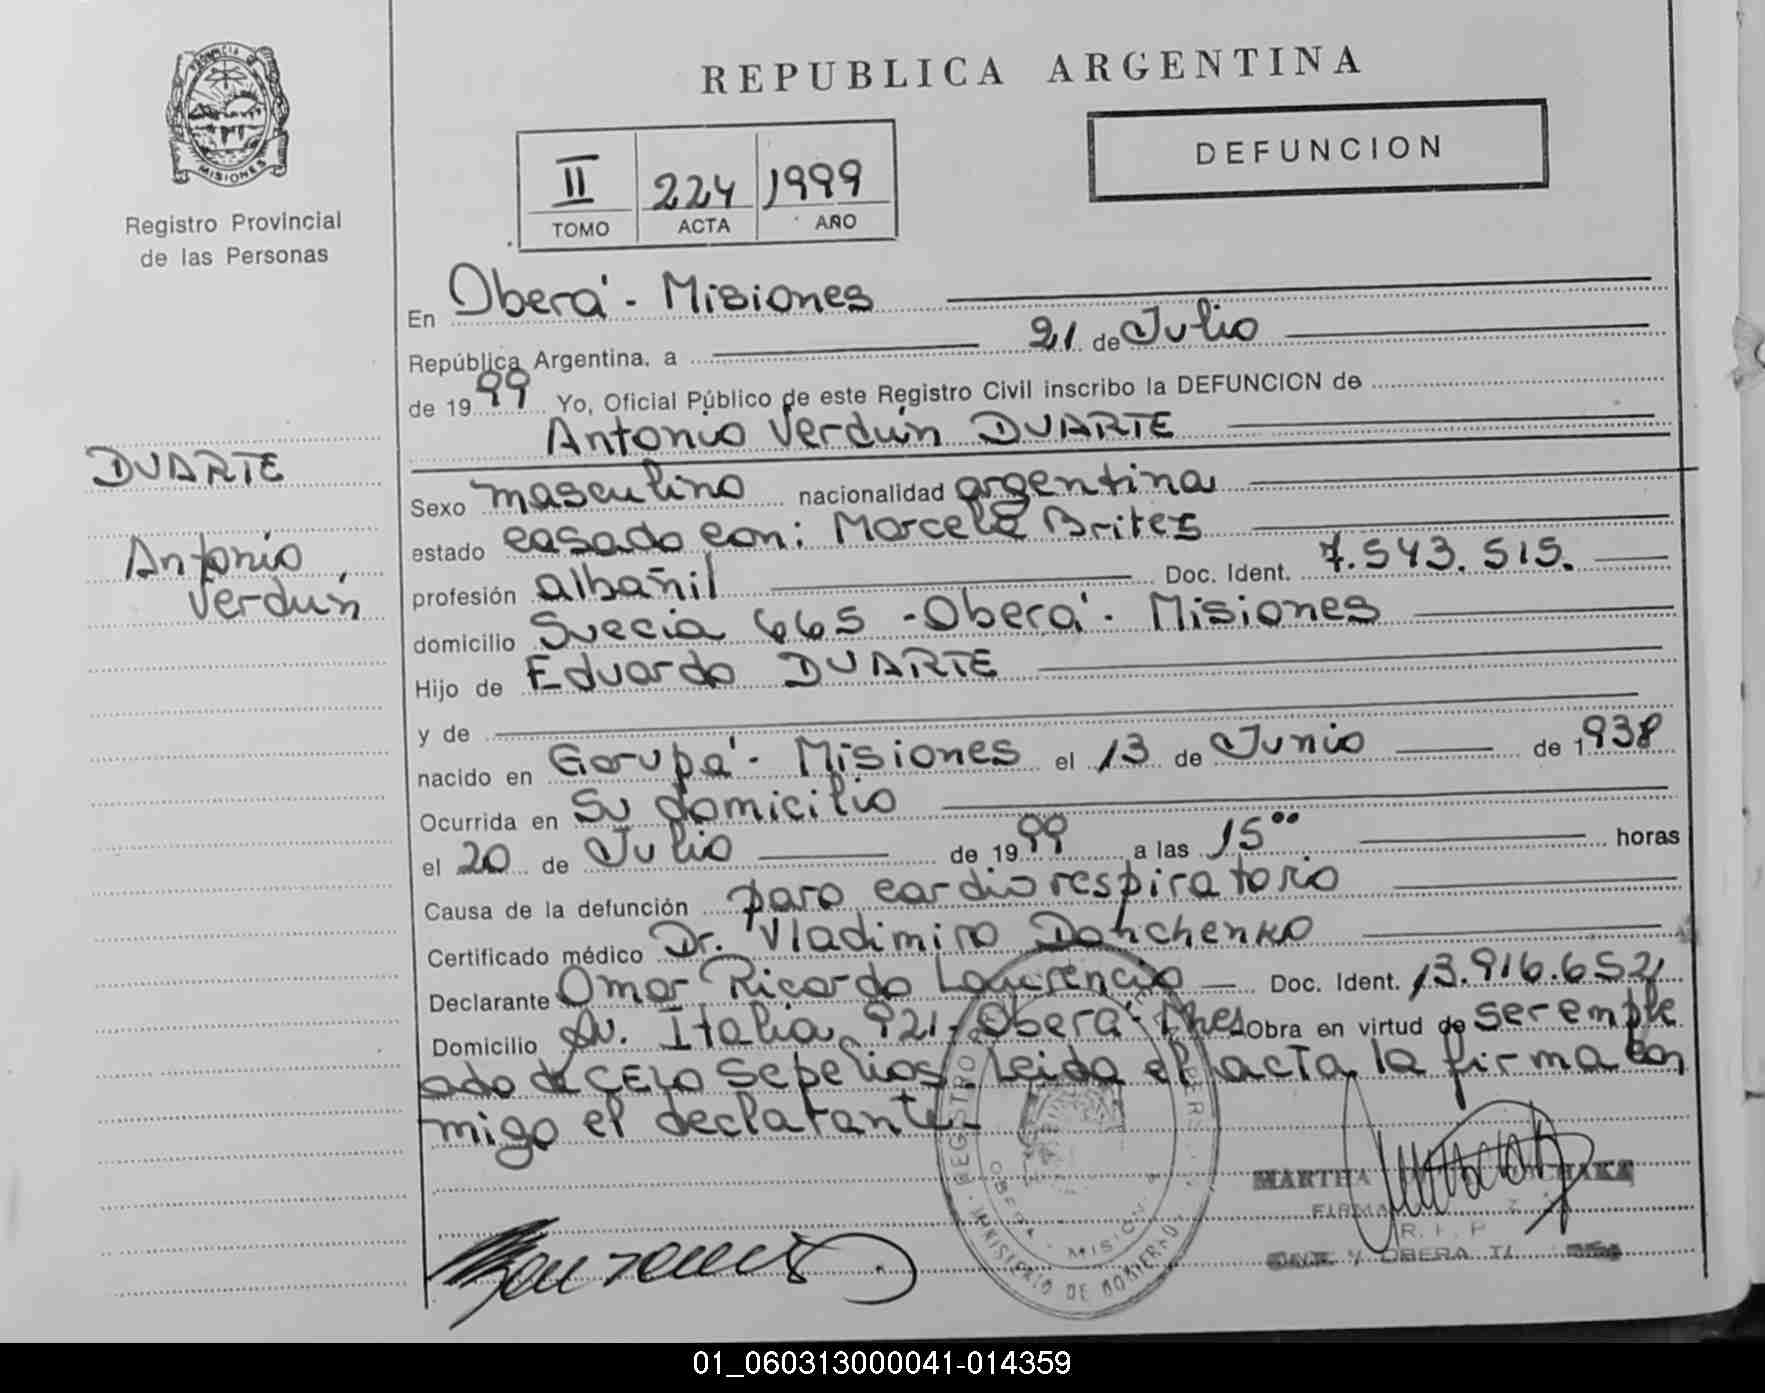 PROVINCIA DE
MISIONES
Registro Provincial
de las Personas
REPUBLICA ARGENTINA
II 224 1999
TOMO ACTA AÑO
DEFUNCION
En Oberá - Misiones
República Argentina, a 21 de Julio
de 1999 Yo, Oficial Público de este Registro Civil inscribo la DEFUNCION de
Antonio Verdún DUARTE
DUARTE
Antonio
Verdún
Sexo masculino nacionalidad argentina
estado casado con: Marcela Brites
profesión albañil Doc. Ident. 7.543.515.
domicilio Suecia 665 - Oberá - Misiones
Hijo de Eduardo DUARTE
y de
nacido en Garupá - Misiones el 13 de Junio de 1938
Ocurrida en su domicilio
el 20 de Julio de 1999 a las 15°° horas
Causa de la defunción paro cardiorespiratorio
Certificado médico Dr. Vladimiro Dohchenko
Declarante Omar Ricardo Laurencio Doc. Ident. 13.916.652
Domicilio Av. Italia 921 - Oberá - Mnes Obra en virtud de ser emple
ado de CELO Sepelios. Leida el acta la firma con
migo el declarante
REGISTRO
OBERA - MISIONES
MINISTERIO DE GOBIERNO
MARTHA
FIRMA
R. P.
OBERA
01_060313000041-014359